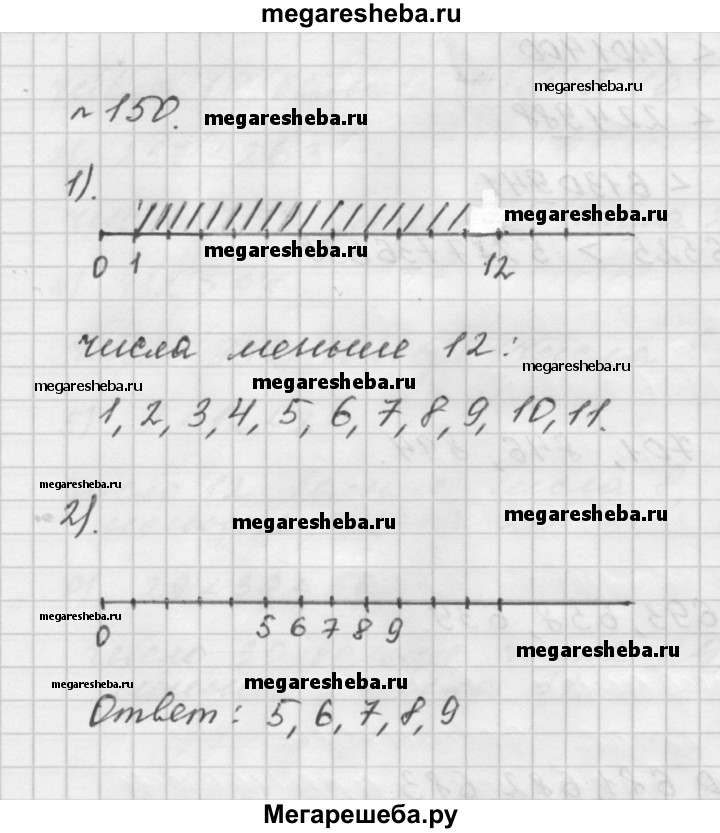 megaresheba.ru
megaresheba.ru
№150. megaresheba.ru
1).
megaresheba.ru
megaresheba.ru
0 1 12
числа меньше 12:
megaresheba.ru
megaresheba.ru megaresheba.ru
1, 2, 3, 4, 5, 6, 7, 8, 9, 10, 11.
megaresheba.ru
2). megaresheba.ru megaresheba.ru
megaresheba.ru
0 5 6 7 8 9
megaresheba.ru
megaresheba.ru megaresheba.ru
Ответ: 5, 6, 7, 8, 9
Мегарешеба.ру